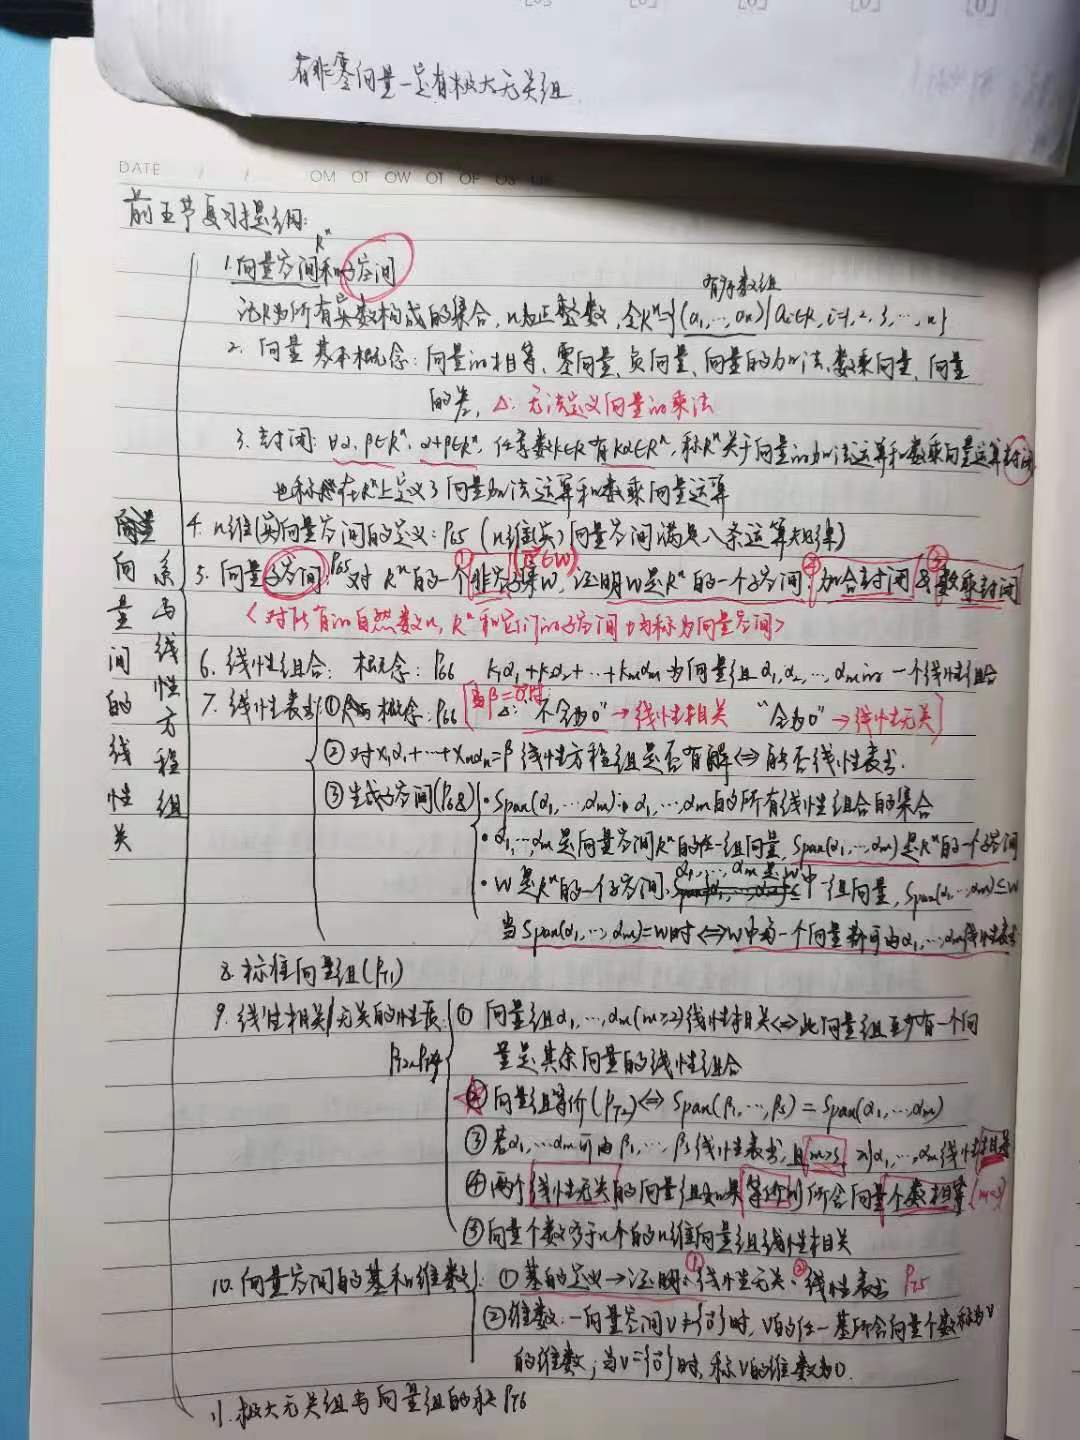 有非零向量一定有极大无关组
DATE / /
前五节复习提纲:
向量间的线性关系与线性方程组
1.向量空间Rⁿ和子空间
有序数组
记R为所有实数构成的集合,n为正整数,令Rⁿ={(a₁,…,aₙ)|aᵢ∈R,i=1,2,3,…,n}
2. 向量基本概念:向量的相等、零向量、负向量、向量的加法、数乘向量、向量
的差, △: 无法定义向量的乘法
3. 封闭: ∀α,β∈Rⁿ,α+β∈Rⁿ, 任意数k∈R有kα∈Rⁿ,称Rⁿ关于向量的加法运算和数乘向量运算封闭
也称在Rⁿ上定义了向量加法运算和数乘向量运算
4. n维(实)向量空间的定义:P65 (n维(实)向量空间满足八条运算规律)
5. 向量子空间:P65 对Rⁿ的一个①非空子集W,(0⃗∈W) 证明W是Rⁿ的一个子空间:②加合封闭与③数乘封闭
<对所有的自然数n,Rⁿ和它们的子空间均称为向量空间>
6. 线性组合: 概念: P66 k₁α₁+k₂α₂+…+kₘαₘ为向量组α₁,α₂,…,αₘ的一个线性组合
7. 线性表出 ①概念:P66 [当β=0⃗时 △: “不全为0”→线性相关 “全为0”→线性无关]
②对x₁α₁+…+xₘαₙ=β线性方程组是否有解⇔能否线性表出.
③生成子空间(P68) •Span(α₁,…,αₘ):α₁,…,αₘ的所有线性组合的集合
•α₁,…,αₘ是向量空间Rⁿ的任一组向量,Span(α₁,…,αₘ)是Rⁿ的一个子空间
•W是Rⁿ的一个子空间,α₁,…,αₘ是W中一组向量,Span(α₁,…,αₘ)⊆W
当Span(α₁,…,αₘ)=W时⇔W中每一个向量都可由α₁,…,αₘ线性表出
8. 标准向量组(P71)
9. 线性相关/无关的性质 ① 向量组α₁,…,αₘ(m≥2)线性相关⇔此向量组至少有一个向
P72~P74 量是其余向量的线性组合
②向量组等价(P72)⇔Span(β₁,…,βs)=Span(α₁,…,αₘ)
③若α₁,…αₘ可由β₁,…,βs线性表出,且m>s,则α₁,…,αₘ线性相关
④两个线性无关的向量组如果等价则所含向量个数相等(m=s)
⑤向量个数多于n个的n维向量组线性相关
10. 向量空间的基和维数 ①基的定义→证明:①线性无关、②线性表出 P75
②维数:一向量空间V≠{0⃗}时,V的任一基所含向量个数称为V
的维数;当V={0⃗}时,称V的维数为0.
11. 极大无关组与向量组的秩 P76